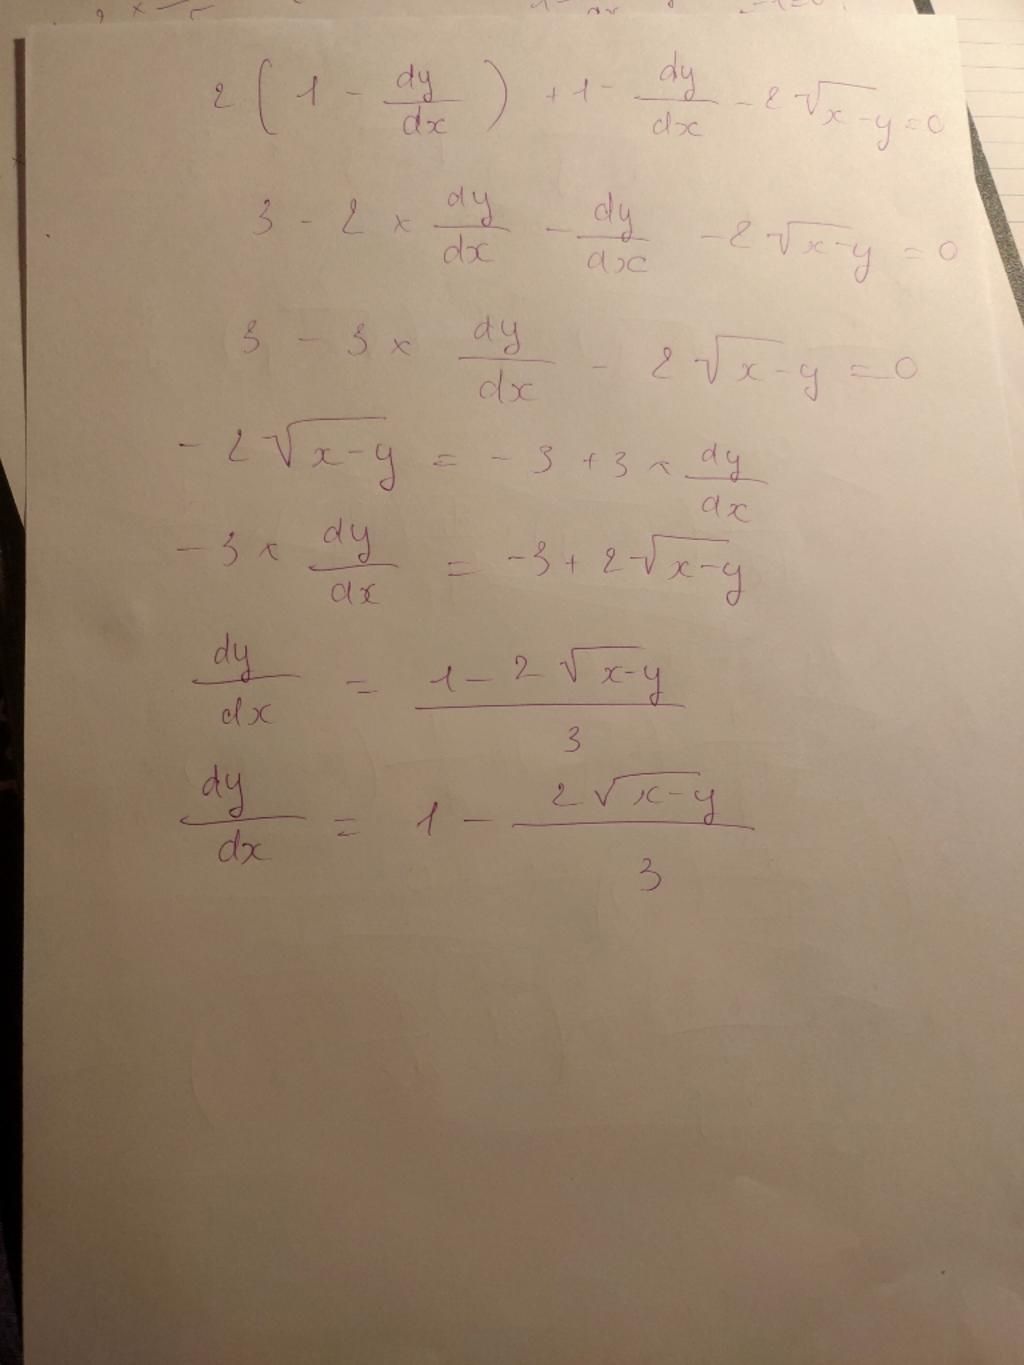 2 ( 1 - dy/dx ) + 1 - dy/dx - 2√x-y = 0
3 - 2 × dy/dx - dy/dx - 2√x-y = 0
3 - 3 × dy/dx - 2√x-y = 0
- 2√x-y = - 3 + 3 × dy/dx
- 3 × dy/dx = -3 + 2√x-y
dy/dx = 1 - 2√x-y / 3
dy/dx = 1 - 2√x-y / 3